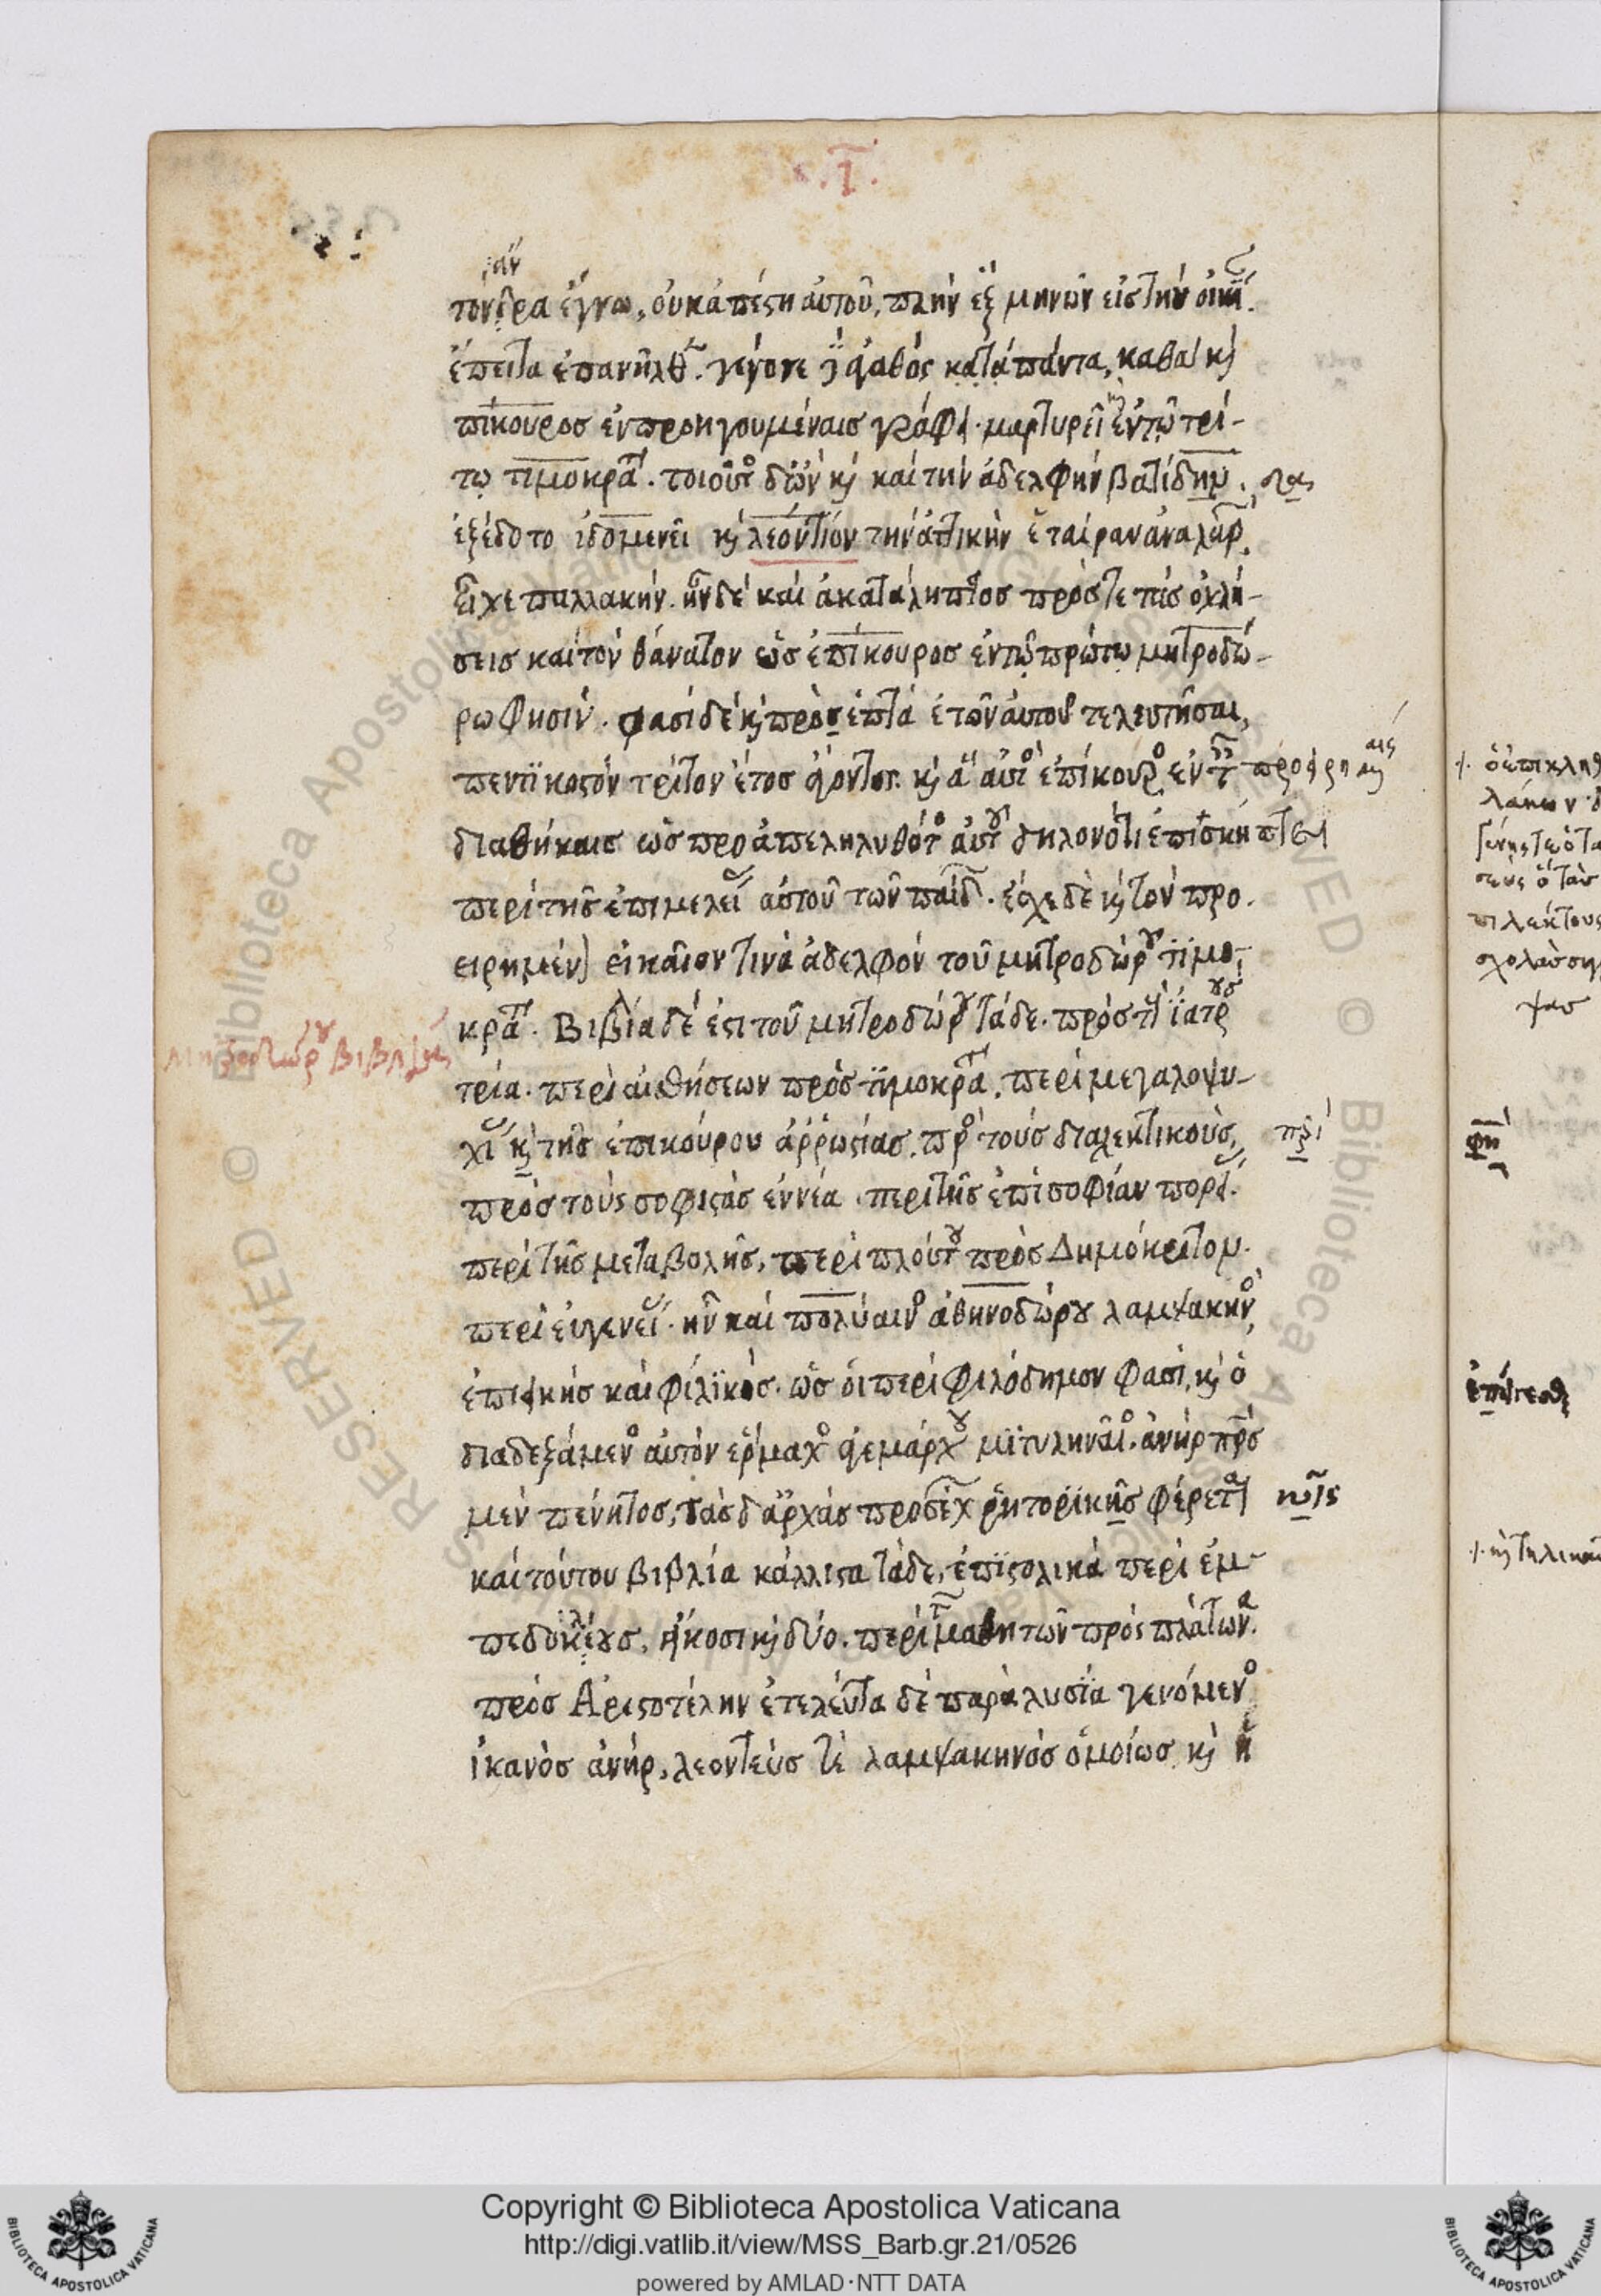 .Ι.
τὸν ἄνδρα ἔγνω, οὐκ ἀπέστη αὐτοῦ, πλὴν ἓξ μηνῶν εἰς τὴν οἰκεί.
ἔπειτα ἐπανῆλθε. γέγονε δ' ἀγαθὸς κατὰ πάντα, καθὰ κὶ
πίκουρος ἐν προηγουμέναις γραφαῖς μαρτυρεῖ κὶ ἐν τῷ τρί-
τῳ τιμοκρατ. τοιοῦτος δ' ὢν κὶ καὶ τὴν ἀδελφὴν βατίδην.
ἐξέδοτο ἰδομενεῖ κὶ λεόντιον τὴν ἀττικὴν ἑταίραν ἀναλαβ
εἶχε παλλακήν. ἦν δὲ καὶ ἀκατάληπτος πρός τε τὰς ὀχλή-
σεις καὶ τὸν θάνατον ὡς ἐπίκουρος ἐν τῷ πρώτῳ μητροδώ-
ρῳ φησίν. φασὶ δὲ κὶ πρὸς ἑπτὰ ἐτῶν αὐτοῦ τελευτῆσαι,
πεντηκοστὸν τρίτον ἔτος ἄγοντος. κὶ αὐτὸς ἐπίκουρος ἐν τ προειρη αις
διαθήκαις ὡς προαπεληλυθότος αὐτοῦ δηλονότι ἐπισκήπτει
περὶ τῆς ἐπιμελεί αὐτοῦ τῶν παίδ. ἔσχε δὲ κὶ τὸν προ.
ειρημέν εἰκαῖον τινὰ ἀδελφὸν τοῦ μητροδώρου τιμο-
κρατ. Βιβλία δέ ἐστι τοῦ μητροδώρου τάδε. πρὸς τ ἰατροὺς
Μητροδώρου βιβλι
τρία. περὶ αἰσθήσεων πρὸς τιμοκρατ. περὶ μεγαλοψυ-
χί κὶ τῆς ἐπικούρου ἀρρωστίας. πρὸς τοὺς διαλεκτικούς,
πρὸς τοὺς σοφιστὰς ἐννέα. περὶ τῆς ἐπὶ σοφίαν πορεί.
περὶ τῆς μεταβολῆς, περὶ πλούτου πρὸς Δημόκριτον.
περὶ εὐγενεί. ἦν καὶ πολύαινος ἀθηνοδώρου λαμψακηνός,
ἐπιεικὴς καὶ φιλικὸς. ὡς οἱ περὶ φιλόδημον φασὶ, κὶ ὁ
διαδεξάμενος αὐτὸν ἕρμαχος ἀγεμάρχου μιτυληναῖος. ἀνὴρ πρὸς
μὲν πένητος, τὰς δ' ἀρχὰς προσέχ ῥητορικῆς φέρεται
καὶ τούτου βιβλία κάλλιστα τάδε, ἐπιστολικὰ περὶ ἐμ-
πεδοκλέους, εἴκοσι κὶ δύο. περὶ τ μαθητῶν πρὸς πλάτωνα.
πρὸς Ἀριστοτέλην ἐτελεύτα δὲ παραλυσία γενόμενος
ἱκανὸς ἀνήρ, λεοντεύς τε λαμψακηνὸς ὁμοίως κὶ ἡ
Copyright © Biblioteca Apostolica Vaticana
http://digi.vatlib.it/view/MSS_Barb.gr.21/0526
powered by AMLAD·NTT DATA